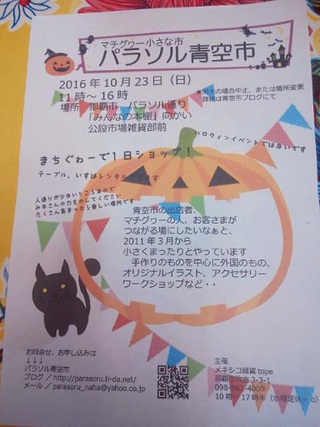 マチグヮー小さな市
パラソル青空市
2016年10月23日（日）
11時～16時
場所 那覇市 パラソル通り
「みんなの本棚」向かい
公設市場雑貨部前
の場合中止、または場所変更
詳細は青空市ブログにて
ハロウィンイベントでは
まちぐゎーで1日ショップ！
テーブル、いすはレンタル
人通りが少ないところなので
みなさんの力をかしてください
たくさん集まったら楽しい場所です
青空市の出店者、
マチグヮーの人、お客さまが
つながる場にしたいなぁと、
2011年3月から
小さくまったりとやっています
手作りのものを中心に外国のもの、
オリジナルイラスト、アクセサリー
ワークショップなど・・
お問合せ、お申し込みは
↓↓↓
パラソル青空市
ブログ／http://parasoru.ti-da.net/
メール／parasoru_naha@yahoo.co.jp
主催
メキシコ雑貨 tope
那覇市牧志3-3-1
10時～17時半